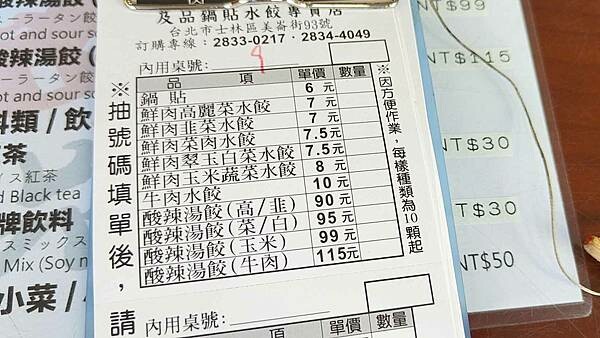 及品鍋貼水餃專賣店
台北市士林區美崙街93號
訂購專線：2833-0217・2834-4049
內用桌號：
品 項 單價 數量
鍋 貼 6 元
鮮肉高麗菜水餃 7 元
鮮肉韭菜水餃 7 元
鮮肉菜肉水餃 7.5元
鮮肉翠玉白菜水餃 7.5元
鮮肉玉米蔬菜水餃 8 元
牛肉水餃 10 元
酸辣湯餃(高/韭) 90 元
酸辣湯餃(菜/白) 95 元
酸辣湯餃(玉米) 99 元
酸辣湯餃(牛肉) 115元
※因方便作業，每樣種類為10顆起
※抽號碼填單後，請
內用桌號：
項 單價 數量
酸辣湯餃
ot and sour so
酸辣湯餃(
ーラータン餃
ot and sour so
料類 / 飲
茶
イス紅茶
d Black tea
牌飲料
スミックス
Mix (Soy m
小菜 /
NT$99
NT$115
NT$30
T$30
NT$50